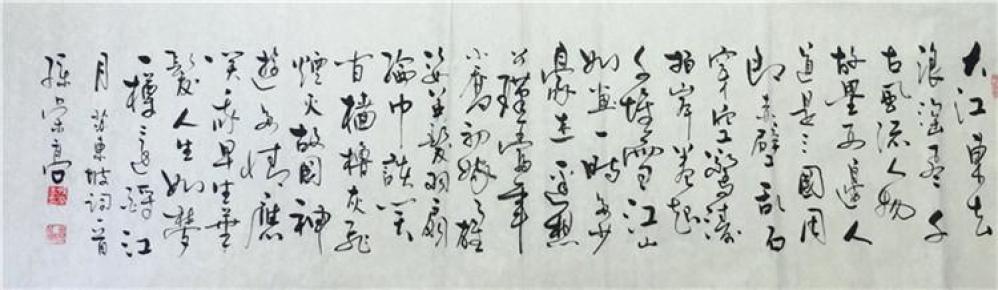 大江東去
浪淘盡千
古風流人物
故壘西邊人
道是三國周
郎赤壁乱石
穿空驚濤
拍岸捲起
千堆雪江山
如畫一時多少
豪杰遥想
公瑾當年
小喬初嫁了雄
姿英發羽扇
綸巾談笑
间檣櫓灰飛
煙火故國神
遊多情應
笑我早生華
髮人生如夢
一樽還酹江
月 苏東坡詞一首
孫崇高